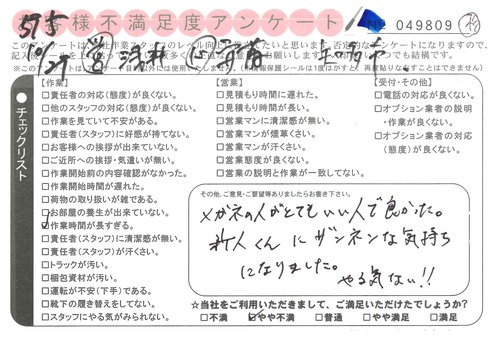 お客様不満足度アンケート
No 049809
10/27
チェックリスト
【作業】
□責任者の対応(態度)が良くない。
□他のスタッフの対応(態度)が良くない。
□作業を見ていて不安がある。
□責任者(スタッフ)に好感が持てない。
□お客様への挨拶が出来ていない。
□ご近所への挨拶・気遣いが無い。
□作業開始前の内容確認がなかった。
□作業開始時間が遅れた。
□荷物の取り扱いが雑である。
□お部屋の養生が出来ていない。
□作業時間が長すぎる。
□責任者(スタッフ)に清潔感が無い。
□責任者(スタッフ)が汗くさい。
□トラックが汚い。
□梱包資材が汚い。
□運転が不安(下手)である。
□靴下の履き替えをしてない。
□スタッフにやる気がみられない。
【営業】
□見積もり時間に遅れた。
□見積もり時間が長い。
□営業マンに清潔感が無い。
□営業マンが煙草くさい。
□営業マンが汗くさい。
□営業態度が良くない。
□営業の説明と作業が一致してない。
【受付・その他】
□電話の対応が良くない。
□オプション業者の説明
・作業が良くない。
□オプション業者の対応
(態度)が良くない。
その他、ご意見・ご要望等ありましたらお書き下さい。
メガネの人がとてもいい人で良かった。
新人くんにザンネンな気持ち
になりました。
やる気ない!!
☆当社をご利用いただきまして、ご満足いただけたでしょうか?
□不満 □やや不満 □普通 □やや満足 □満足